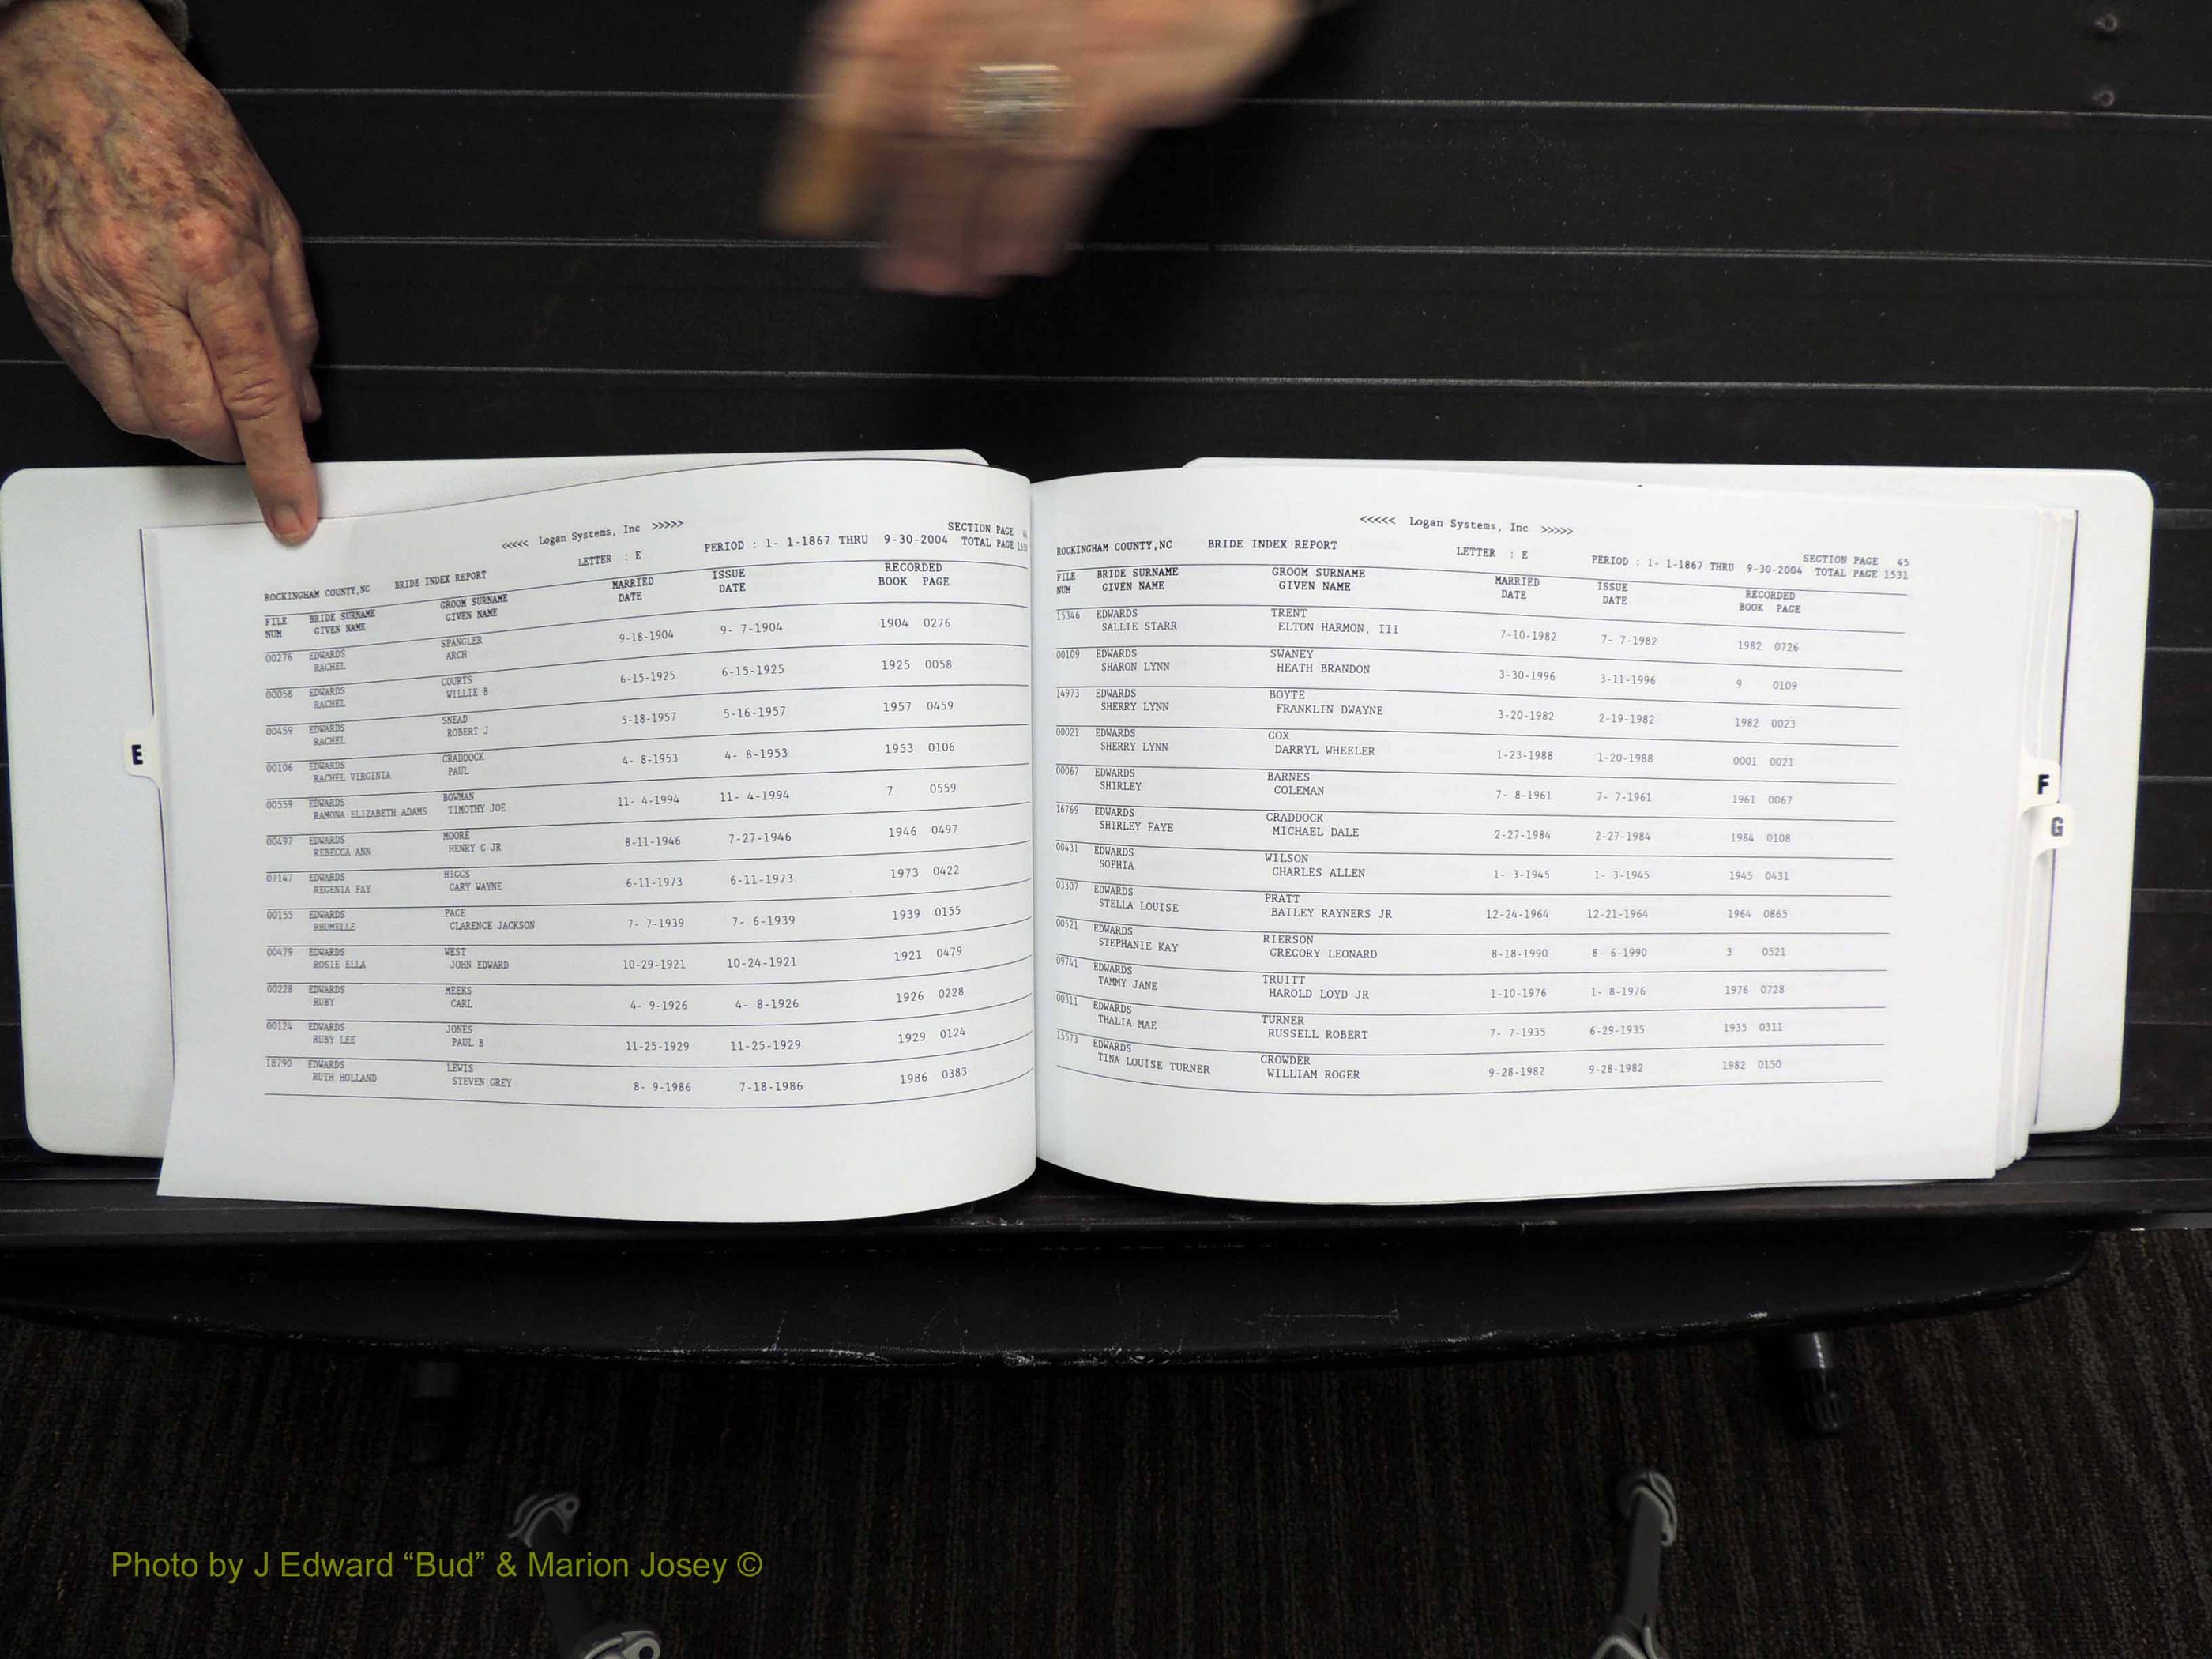 <<<<< Logan Systems, Inc >>>>>
SECTION PAGE
ROCKINGHAM COUNTY,NC BRIDE INDEX REPORT LETTER : E PERIOD : 1- 1-1867 THRU 9-30-2004 TOTAL PAGE
FILE BRIDE SURNAME GROOM SURNAME MARRIED ISSUE RECORDED
NUM GIVEN NAME GIVEN NAME DATE DATE BOOK PAGE
00276 EDWARDS SPANGLER
RACHEL ARCH 9-18-1904 9- 7-1904 1904 0276
00058 EDWARDS COURTS
RACHEL WILLIE B 6-15-1925 6-15-1925 1925 0058
00459 EDWARDS SNEAD
RACHEL ROBERT J 5-18-1957 5-16-1957 1957 0459
00106 EDWARDS CRADDOCK
RACHEL VIRGINIA PAUL 4- 8-1953 4- 8-1953 1953 0106
00559 EDWARDS BOWMAN
RAMONA ELIZABETH ADAMS TIMOTHY JOE 11- 4-1994 11- 4-1994 7 0559
00497 EDWARDS MOORE
REBECCA ANN HENRY C JR 8-11-1946 7-27-1946 1946 0497
07147 EDWARDS HIGGS
REGENIA FAY GARY WAYNE 6-11-1973 6-11-1973 1973 0422
00155 EDWARDS PACE
RHUMELLE CLARENCE JACKSON 7- 7-1939 7- 6-1939 1939 0155
00479 EDWARDS WEST
ROSIE ELLA JOHN EDWARD 10-29-1921 10-24-1921 1921 0479
00228 EDWARDS MEEKS
RUBY CARL 4- 9-1926 4- 8-1926 1926 0228
00124 EDWARDS JONES
RUBY LEE PAUL B 11-25-1929 11-25-1929 1929 0124
18790 EDWARDS LEWIS
RUTH HOLLAND STEVEN GREY 8- 9-1986 7-18-1986 1986 0383
E
<<<<< Logan Systems, Inc >>>>>
SECTION PAGE 45
ROCKINGHAM COUNTY,NC BRIDE INDEX REPORT LETTER : E PERIOD : 1- 1-1867 THRU 9-30-2004 TOTAL PAGE 1531
FILE BRIDE SURNAME GROOM SURNAME MARRIED ISSUE RECORDED
NUM GIVEN NAME GIVEN NAME DATE DATE BOOK PAGE
15346 EDWARDS TRENT
SALLIE STARR ELTON HARMON, III 7-10-1982 7- 7-1982 1982 0726
00109 EDWARDS SWANEY
SHARON LYNN HEATH BRANDON 3-30-1996 3-11-1996 9 0109
14973 EDWARDS BOYTE
SHERRY LYNN FRANKLIN DWAYNE 3-20-1982 2-19-1982 1982 0023
00021 EDWARDS COX
SHERRY LYNN DARRYL WHEELER 1-23-1988 1-20-1988 0001 0021
00067 EDWARDS BARNES
SHIRLEY COLEMAN 7- 8-1961 7- 7-1961 1961 0067
16769 EDWARDS CRADDOCK
SHIRLEY FAYE MICHAEL DALE 2-27-1984 2-27-1984 1984 0108
00431 EDWARDS WILSON
SOPHIA CHARLES ALLEN 1- 3-1945 1- 3-1945 1945 0431
03307 EDWARDS PRATT
STELLA LOUISE BAILEY RAYNERS JR 12-24-1964 12-21-1964 1964 0865
00521 EDWARDS RIERSON
STEPHANIE KAY GREGORY LEONARD 8-18-1990 8- 6-1990 3 0521
09741 EDWARDS TRUITT
TAMMY JANE HAROLD LOYD JR 1-10-1976 1- 8-1976 1976 0728
00311 EDWARDS TURNER
THALIA MAE RUSSELL ROBERT 7- 7-1935 6-29-1935 1935 0311
15573 EDWARDS CROWDER
TINA LOUISE TURNER WILLIAM ROGER 9-28-1982 9-28-1982 1982 0150
F
G
Photo by J Edward “Bud” & Marion Josey ©